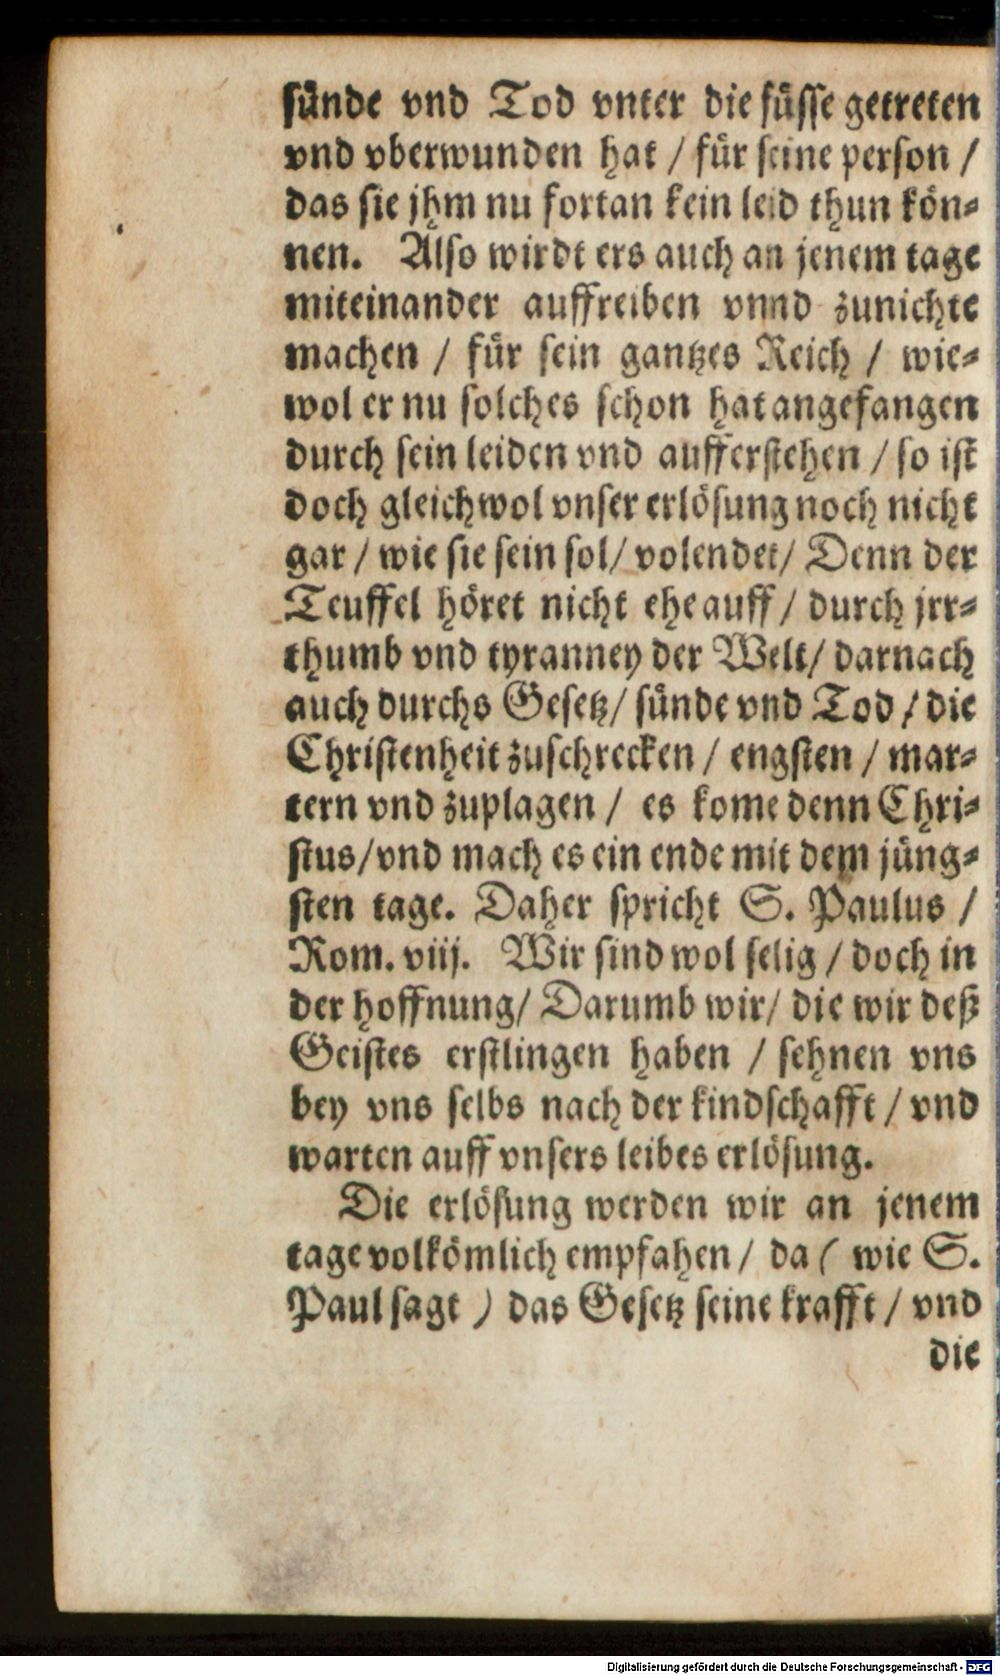 sünde vnd Tod vnter die füsse getreten
vnd vberwunden hat / für seine person /
das sie jhm nu fortan kein leid thun kön⸗
nen. Also wirdt ers auch an jenem tage
miteinander auffreiben vnnd zunichte
machen / für sein gantzes Reich / wie⸗
wol er nu solches schon hat angefangen
durch sein leiden vnd aufferstehen / so ist
doch gleichwol vnser erlösung noch nicht
gar / wie sie sein sol / volendet / Denn der
Teuffel höret nicht ehe auff / durch jrr⸗
thumb vnd tyranney der Welt / darnach
auch durchs Gesetz / sünde vnd Tod / die
Christenheit zuschrecken / engsten / mar⸗
tern vnd zuplagen / es kome denn Chri⸗
stus / vnd mach es ein ende mit dem jüng⸗
sten tage. Daher spricht S. Paulus /
Rom. viij. Wir sind wol selig / doch in
der hoffnung / Darumb wir / die wir deß
Geistes erstlingen haben / sehnen vns
bey vns selbs nach der kindschafft / vnd
warten auff vnsers leibes erlösung.
Die erlösung werden wir an jenem
tage volkömlich empfahen / da ( wie S.
Paul sagt ) das Gesetz seine krafft / vnd
die
Digitalisierung gefördert durch die Deutsche Forschungsgemeinschaft - DFG